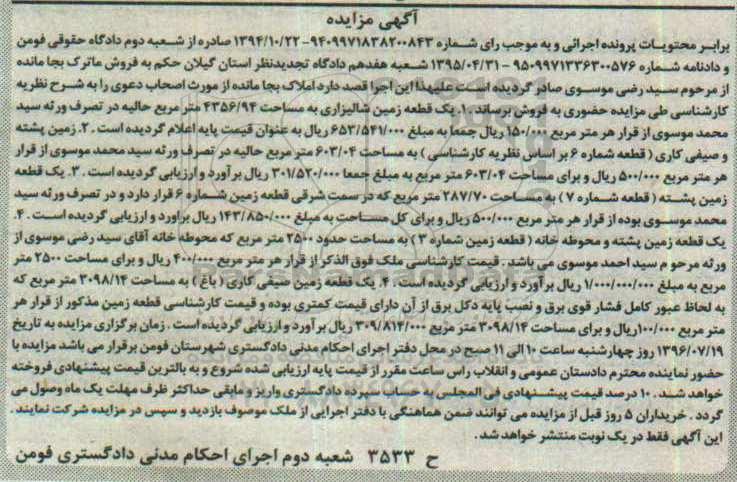 آگهی مزایده
برابر محتویات پرونده اجرائی و به موجب رای شماره ۹۴۰۹۹۷۱۸۳۸۲۰۰۸۴۳-۱۳۹۴/۱۰/۲۲ صادره از شعبه دوم دادگاه حقوقی فومن
و دادنامه شماره ۹۵۰۹۹۷۱۳۳۶۳۰۰۵۷۶-۱۳۹۵/۰۴/۳۱ شعبه هفدهم دادگاه تجدیدنظر استان گیلان حکم به فروش ماترک بجا مانده
از مرحوم سید رضی موسوی صادر گردیده است علیهذا این اجرا قصد دارد املاک بجا مانده از مورث اصحاب دعوی را به شرح نظریه
کارشناسی طی مزایده حضوری به فروش برساند. ۱. یک قطعه زمین شالیزاری به مساحت ۴۳۵۶/۹۴ متر مربع حالیه در تصرف ورثه سید
محمد موسوی از قرار هر متر مربع ۱۵۰/۰۰۰ ریال جمعا به مبلغ ۶۵۳/۵۴۱/۰۰۰ ریال به عنوان قیمت پایه اعلام گردیده است . ۲. زمین پشته
و صیفی کاری ( قطعه شماره ۶ بر اساس نظریه کارشناسی ) به مساحت ۶۰۳/۰۴ متر مربع حالیه در تصرف ورثه سید محمد موسوی از قرار
هر متر مربع ۵۰۰/۰۰۰ ریال و برای مساحت ۶۰۳/۰۴ متر مربع به مبلغ جمعا ۳۰۱/۵۲۰/۰۰۰ ریال برآورد و ارزیابی گردیده است . ۳. یک قطعه
زمین پشته ( قطعه شماره ۷ ) به مساحت ۲۸۷/۷۰ متر مربع که در سمت شرقی قطعه زمین شماره ۶ قرار دارد و در تصرف ورثه سید
محمد موسوی بوده از قرار هر متر مربع ۵۰۰/۰۰۰ ریال و برای کل مساحت به مبلغ ۱۴۳/۸۵۰/۰۰۰ ریال براورد و ارزیابی گردیده است . ۴.
یک قطعه زمین پشته و محوطه خانه ( قطعه زمین شماره ۳ ) به مساحت حدود ۲۵۰۰ متر مربع که محوطه خانه آقای سید رضی موسوی از
ورثه مرحوم سید احمد موسوی می باشد . قیمت کارشناسی ملک فوق الذکر از قرار هر متر مربع ۴۰۰/۰۰۰ ریال و برای مساحت ۲۵۰۰ متر
مربع به مبلغ ۱/۰۰۰/۰۰۰/۰۰۰ ریال برآورد و ارزیابی گردیده است . ۴. یک قطعه زمین صیفی کاری ( باغ ) به مساحت ۳۰۹۸/۱۴ متر مربع که
به لحاظ عبور کامل فشار قوی برق و نصب پایه دکل برق از آن دارای قیمت کمتری بوده و قیمت کارشناسی قطعه زمین مذکور از قرار هر
متر مربع ۱۰۰/۰۰۰ ریال و برای مساحت ۳۰۹۸/۱۴ متر مربع ۳۰۹/۸۱۴/۰۰۰ ریال برآورد و ارزیابی گردیده است . زمان برگزاری مزایده به تاریخ
۱۳۹۶/۰۷/۱۹ روز چهارشنبه ساعت ۱۰ الی ۱۱ صبح در محل دفتر اجرای احکام مدنی دادگستری شهرستان فومن برقرار می باشد مزایده با
حضور نماینده محترم دادستان عمومی و انقلاب راس ساعت مقرر از قیمت پایه ارزیابی شده شروع و به بالاترین قیمت پیشنهادی فروخته
خواهد شد . ۱۰ درصد قیمت پیشنهادی فی المجلس به حساب سپرده دادگستری واریز و مابقی حداکثر ظرف مهلت یک ماه وصول می
گردد . خریداران ۵ روز قبل از مزایده می توانند ضمن هماهنگی با دفتر اجرایی از ملک موصوف بازدید و سپس در مزایده شرکت نمایند .
این آگهی فقط در یک نوبت منتشر خواهد شد .
ح ۳۵۳۳ شعبه دوم اجرای احکام مدنی دادگستری فومن